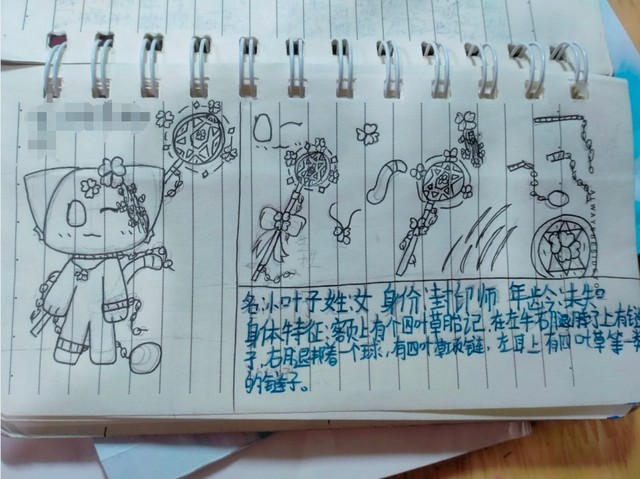 名:小叶子 姓:女 身份:封印师 年龄:未知
身体特征:额頁上有个四叶草胎记,在左手右腿脖子上有链
子,右月退绑着一个球,有四叶草项链,左耳上有四叶草
的链子。